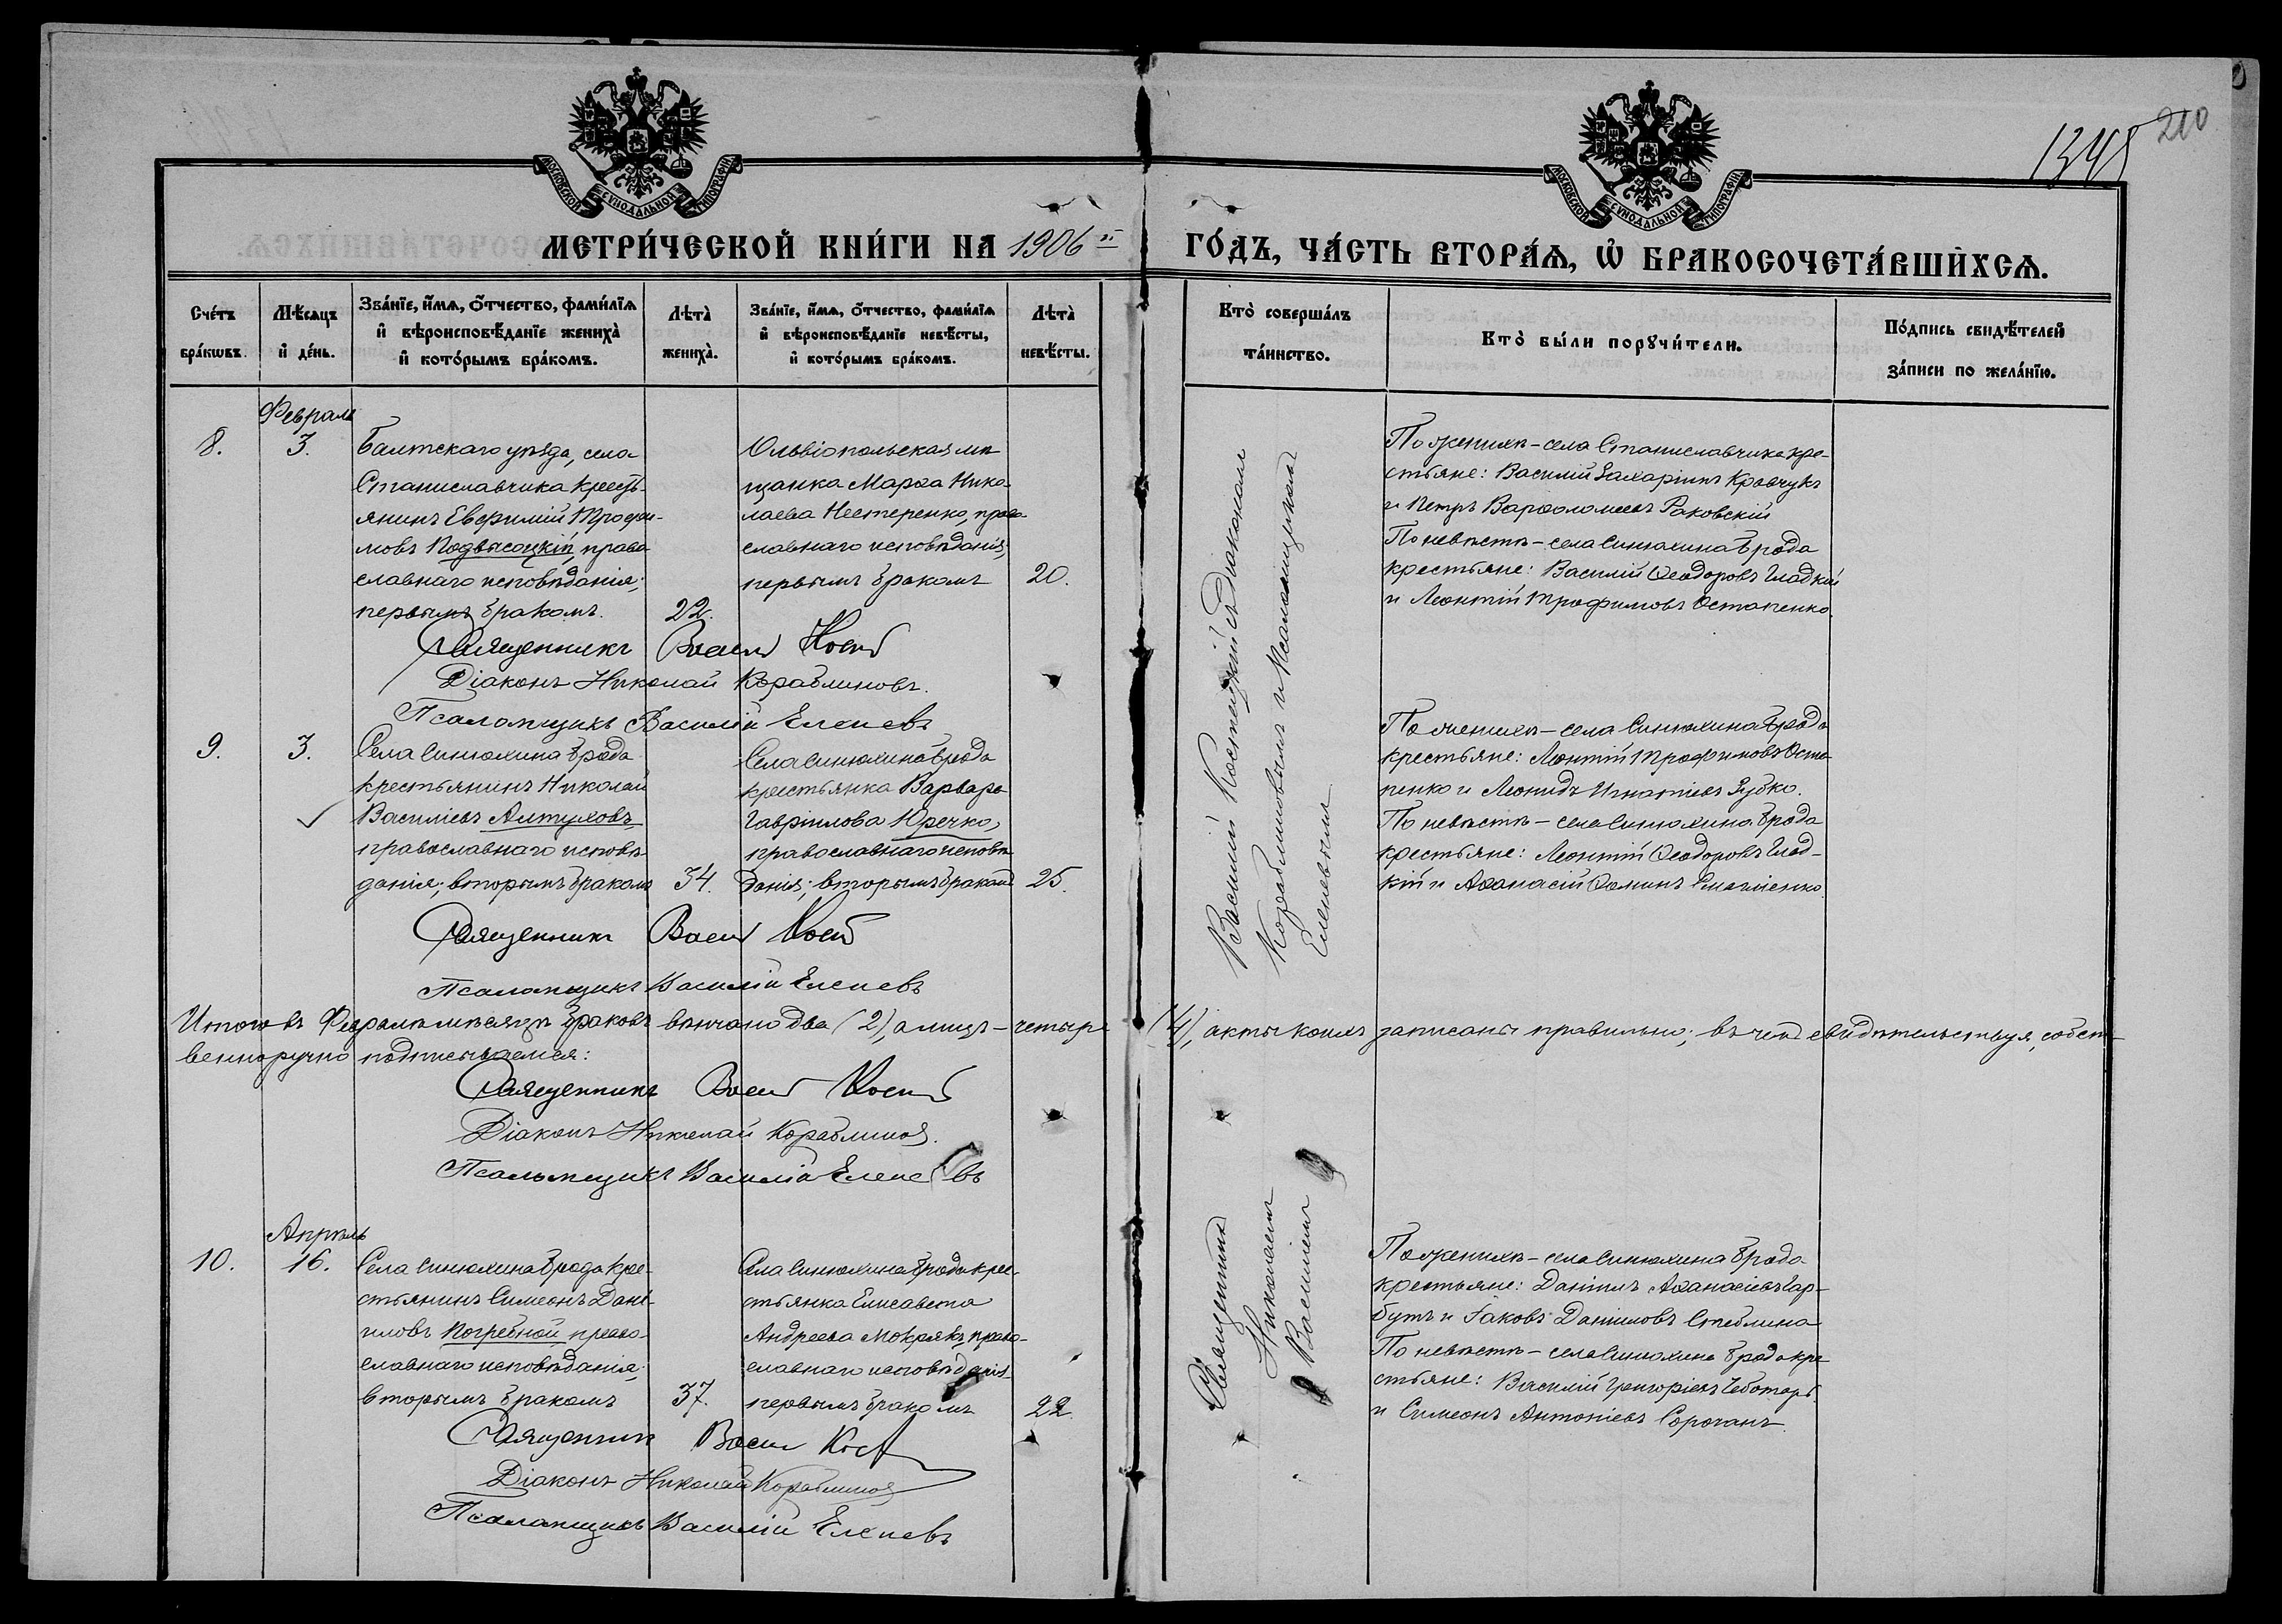 1345
210
МОСКОВСКОЙ СУНОДАЛЬНОЙ ТИПОГРАФІИ
МОСКОВСКОЙ СУНОДАЛЬНОЙ ТИПОГРАФІИ
МЕТРИ́ЧЕСКОЙ КНИ́ГИ НА 1906 й ГО́ДЪ, ЧА́СТЬ ВТОРА́Ѧ, Ѡ҆ БРАКОСОЧЕТА́ВШИХСѦ.
Сче́тъ бра́кѡвъ.
Мѣ́сяцъ и҆ де́нь.
Зва́нїе, и҆́мѧ, ѻ҆́тчество, фами́лїѧ и҆ вѣроисповѣ́данїе жениха̀ и҆ кото́рымъ бра́комъ.
Лѣта̀ жениха̀.
Зва́нїе, и҆́мѧ, ѻ҆́тчество, фами́лїѧ и҆ вѣроисповѣ́данїе невѣ́сты, и҆ кото́рымъ бра́комъ.
Лѣта̀ невѣ́сты.
Кто̀ соверша́лъ та́инство.
Кто̀ бы́ли порꙋчи́тели.
По́дпись свидѣ́телей за́писи по жела́нїю.
Февраль
8.
3.
Балтскаго уѣзда, села
Станиславчика кресть-
янинъ Евфимій Трофи-
мовъ Подвысоцкій, право-
славнаго исповѣданія;
первымъ бракомъ.
22.
Ольвіопольская мѣ-
щанка Марѳа Нико-
лаева Нестеренко, право-
славнаго исповѣданія;
первымъ бракомъ
20.
Василій Костецкій съ Діакономъ
Кораблиновымъ и Псаломщикомъ
Еленевымъ
По женихѣ – села Станиславчика кре-
стьяне: Василій Захаріинъ Кравчукъ
и Петръ Варѳоломеевъ Раковскій
По невѣстѣ – села Синюхина Брода
крестьяне: Василій Ѳеодоровъ Гладкій
и Леонтій Трофимовъ Остапенко.
Священникъ Васил Кост
Діаконъ Николай Кораблиновъ.
Псаломщикъ Василій Еленевъ
9.
3.
Села Синюхина Брода
крестьянинъ Николай
Василіевъ Алтуховъ,
православнаго исповѣ-
данія; вторымъ бракомъ
34.
Села Синюхина Брода
крестьянка Варвара
Гавріилова Юречко,
православнаго исповѣ-
данія; вторымъ бракомъ
25.
По женихѣ – села Синюхина Брода
крестьяне: Леонтій Трофимовъ Оста-
пенко и Леонидъ Игнатіевъ Зубко.
По невѣстѣ – села Синюхина Брода
крестьяне: Леонтій Ѳеодоровъ Глад-
кій и Аѳанасій Ѳоминъ
Священникъ Васил Кост
Псаломщикъ Василій Еленевъ
Итого въ Февралѣ мѣсяцѣ браковъ вѣнчано два (2), а лицъ – четыре (4), акты коихъ записаны правильно; въ чемъ свидѣтельствуя, собст-
венноручно подписываемся:
Священникъ Васил Кост
Діаконъ Николай Кораблиновъ.
Псаломщикъ Василій Еленевъ
Апрѣль
10.
16.
Села Синюхина Брода кре-
стьянинъ Симеонъ Дані-
иловъ Погребной, право-
славнаго исповѣданія;
вторымъ бракомъ
37.
Села Синюхина Брода кре-
стьянка Елисавета
Андреева Мокрякъ, право-
славнаго исповѣданія
первымъ бракомъ
22.
Священникъ
Николаемъ
Василіемъ
По женихѣ – села Синюхина Брода
крестьяне: Даніилъ Аѳанасіевъ Гар-
бутъ и Іаковъ Даніиловъ Стеблина
По невѣстѣ – села Синюхина Брода кре-
стьяне: Василій Григоріевъ Чеботарь
и Симеонъ Антоніевъ Сорочанъ.
Священникъ Васил Кост
Діаконъ Николай Кораблиновъ
Псаломщикъ Василій Еленевъ